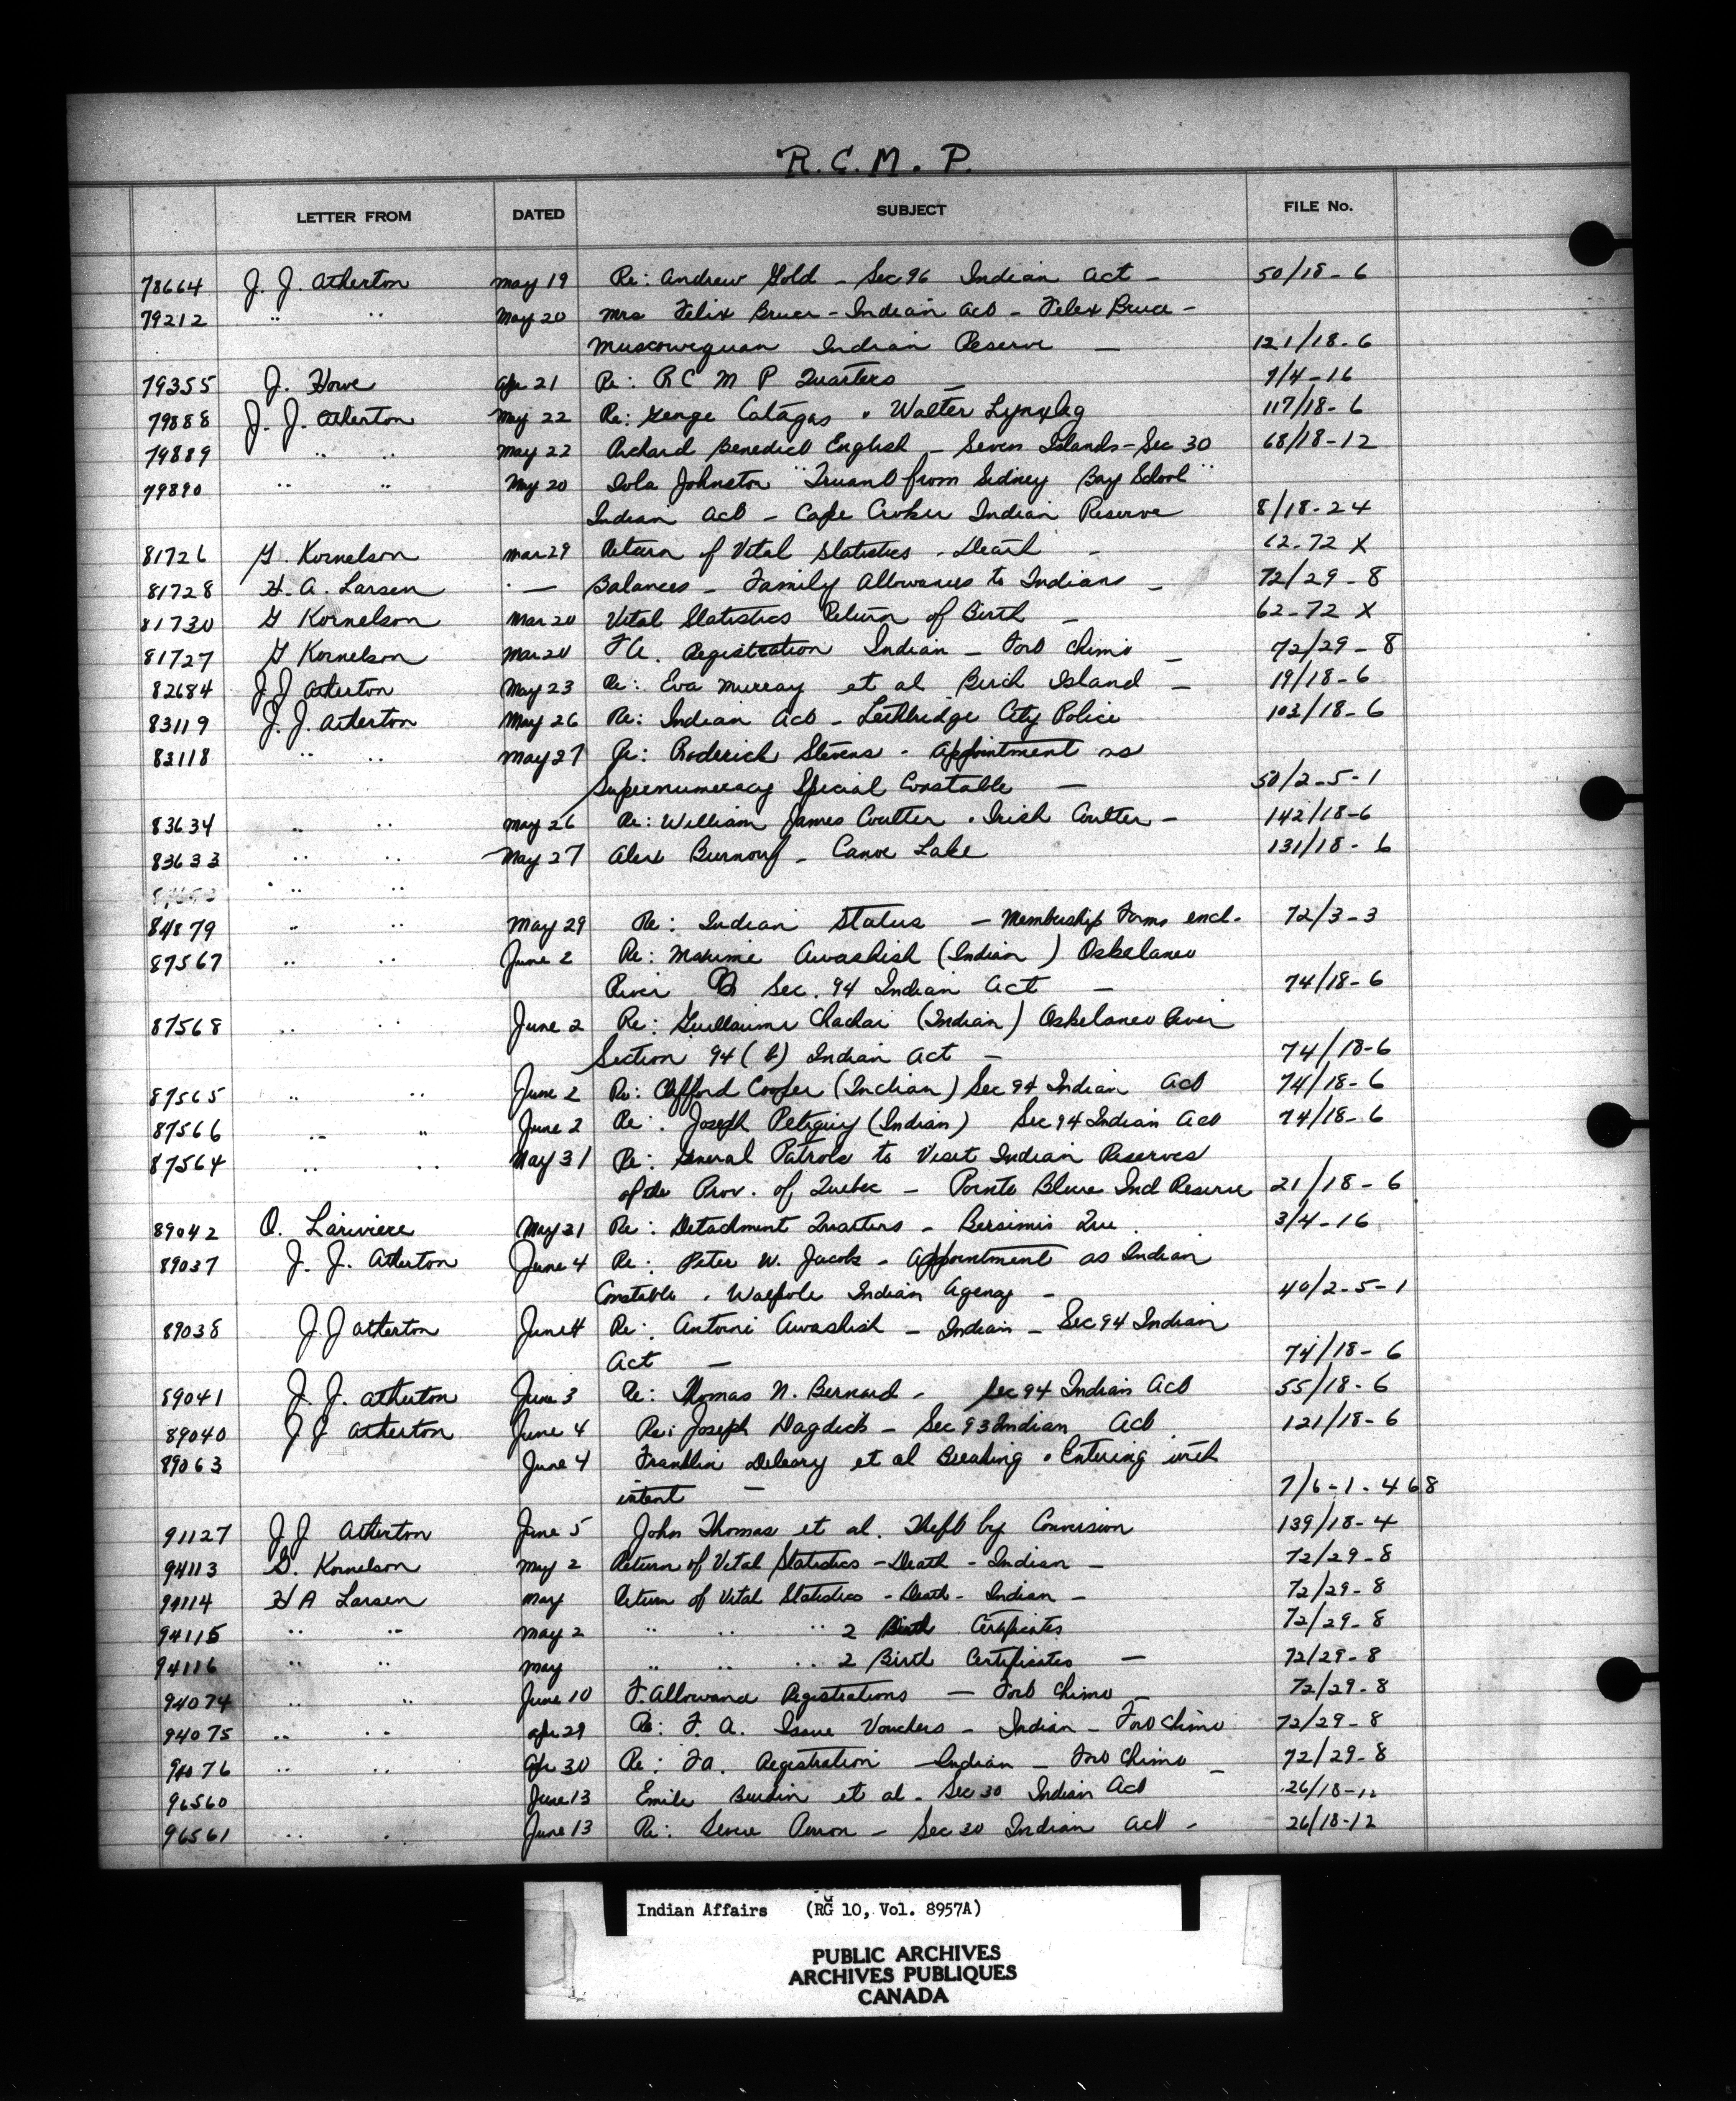 R.C.M.P.
LETTER FROM DATED SUBJECT FILE No.
78664 J. J. Atherton May 19 Re: Andrew Gold - Sec 96 Indian Act - 50/18-6
79212 " " May 20 Mrs Felix Bruce - Indian Act - Felex Bruce -
Muscowequan Indian Reserve - 121/18-6
79355 J. Howe Apr 21 Re: R C M P Quarters - 7/4-16
79888 J. J. Atherton May 22 Re: George Catagas . Walter Lynxleg 117/18-6
79889 " " May 22 Richard Benedict English - Seven Islands - Sec 30 68/18-12
79890 " " May 20 Iola Johnston "Truant from Sidney Bay School"
Indian Act - Cape Croker Indian Reserve 8/18-24
81726 G. Kornelson Mar 29 Return of Vital Statistics - Death - 62-72 X
81728 H. A. Larsen - Balances - Family Allowances to Indians - 72/29-8
81730 G Kornelson Mar 20 Vital Statistics Return of Birth - 62-72 X
81727 G Kornelson Mar 20 Registration Indian - Fort Chimo - 72/29-8
82684 J J Atherton May 23 Re: Eva Murray et al Birch Island - 19/18-6
83119 J. J. Atherton May 26 Re: Indian Act - Lethbridge City Police 103/18-6
83118 " " May 27 Re: Roderick Stevens - Appointment as
Supernumeracy Special Constable - 50/2-5-1
83634 " " May 26 Re: William James Coulter . Irish Coulter - 142/18-6
83633 " " May 27 Alex Burnouf - Canoe Lake 131/18-6
" "
84879 " " May 29 Re: Indian Status - Membership Forms encl. 72/3-3
87567 " " June 2 Re: Maxime Awashish (Indian) Oskelaneo
River Sec. 94 Indian Act - 74/18-6
87568 " " June 2 Re: Guillaume Chachai (Indian) Oskelaneo River
Section 94 (b) Indian Act - 74/18-6
87565 " " June 2 Re: Clifford Cooper (Indian) Sec 94 Indian Act 74/18-6
87566 " " June 2 Re: Joseph Petiquiy (Indian) Sec 94 Indian Act 74/18-6
87564 " " May 31 Re: General Patrols to Visit Indian Reserves
of the Prov. of Quebec - Pointe Bleue Ind Reserve 21/18-6
89042 O. Lariviere May 31 Re: Detachment Quarters - Bersimis Que. 3/4-16
89037 J. J. Atherton June 4 Re: Peter W. Jacobs - Appointment as Indian
Constable . Walpole Indian Agency - 40/2-5-1
89038 J J Atherton June 4 Re: Antoine Awashish - Indian - Sec 94 Indian
Act - 74/18-6
89041 J. J. Atherton June 3 Re: Thomas N. Bernard - Sec 94 Indian Act 55/18-6
89040 J J Atherton June 4 Re: Joseph Dagdick - Sec 93 Indian Act 121/18-6
89063 June 4 Franklin Deleary et al Breaking . Entering with
intent - 7/6-1-468
91127 J J Atherton June 5 John Thomas et al. Theft by Conversion 139/18-4
94113 G. Kornelson May 2 Return of Vital Statistics - Death - Indian - 72/29-8
94114 H A Larsen May Return of Vital Statistics - Death - Indian - 72/29-8
94115 " " May 2 " " " 2 Birth Certificates 72/29-8
94116 " " May " " " 2 Birth Certificates - 72/29-8
94074 " " June 10 F. Allowance Registrations - Fort Chimo - 72/29-8
94075 " " Apr 29 Re: F. A. Issue Vouchers - Indian - Fort Chimo 72/29-8
94076 " " Apr 30 Re: F A. Registration - Indian - Fort Chimo - 72/29-8
96560 June 13 Emile et al - Sec 30 Indian Act 26/18-12
96561 " " June 13 Re: - Sec 30 Indian Act - 26/18-12
Indian Affairs (RG 10, Vol. 8957A)
PUBLIC ARCHIVES
ARCHIVES PUBLIQUES
CANADA